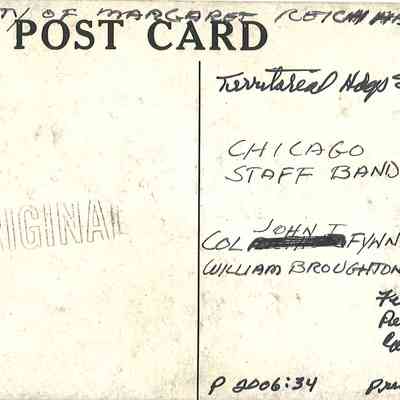 TY OF MARGARET REICH
POST CARD
Territorial Hdqs
CHICAGO
STAFF BAND
RIGINAL
JOHN T
COL FYNN
WILLIAM BROUGHTON
P 2006:34